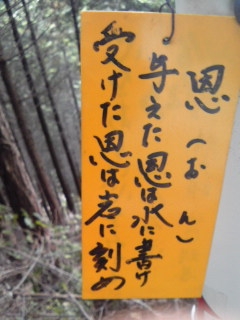 恩(おん)
与えた恩は水に書け
受けた恩は岩に刻め